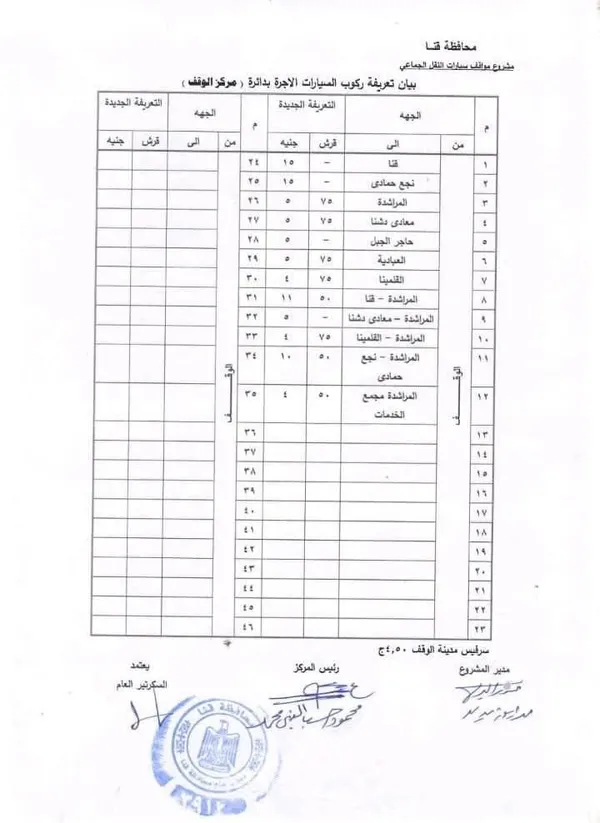 محافظة قنا
مشروع مواقف سيارات النقل الجماعي
بيان تعريفة ركوب السيارات الاجرة بدائرة ( مركز الوقف )
م الجهه التعريفة الجديدة م الجهه التعريفة الجديدة
من الى قرش جنيه من الى قرش جنيه
الوقـــف الوقـــف
١ قنا - ١٥ ٢٤
٢ نجع حمادى - ١٥ ٢٥
٣ المراشدة ٧٥ ٥ ٢٦
٤ معادى دشنا ٧٥ ٥ ٢٧
٥ حاجر الجبل - ٥ ٢٨
٦ العبادية ٧٥ ٥ ٢٩
٧ القلمينا ٧٥ ٤ ٣٠
٨ المراشدة - قنا ٥٠ ١١ ٣١
٩ المراشدة - معادى دشنا - ٥ ٣٢
١٠ المراشدة - القلمينا ٧٥ ٤ ٣٣
١١ المراشدة - نجع ٥٠ ١٠ ٣٤
حمادى
١٢ المراشدة مجمع ٥٠ ٤ ٣٥
الخدمات
١٣ ٣٦
١٤ ٣٧
١٥ ٣٨
١٦ ٣٩
١٧ ٤٠
١٨ ٤١
١٩ ٤٢
٢٠ ٤٣
٢١ ٤٤
٢٢ ٤٥
٢٣ ٤٦
سرفيس مدينة الوقف ٤,٥٠ج
مدير المشروع رئيس المركز يعتمد
السكرتير العام
محافظة قنا